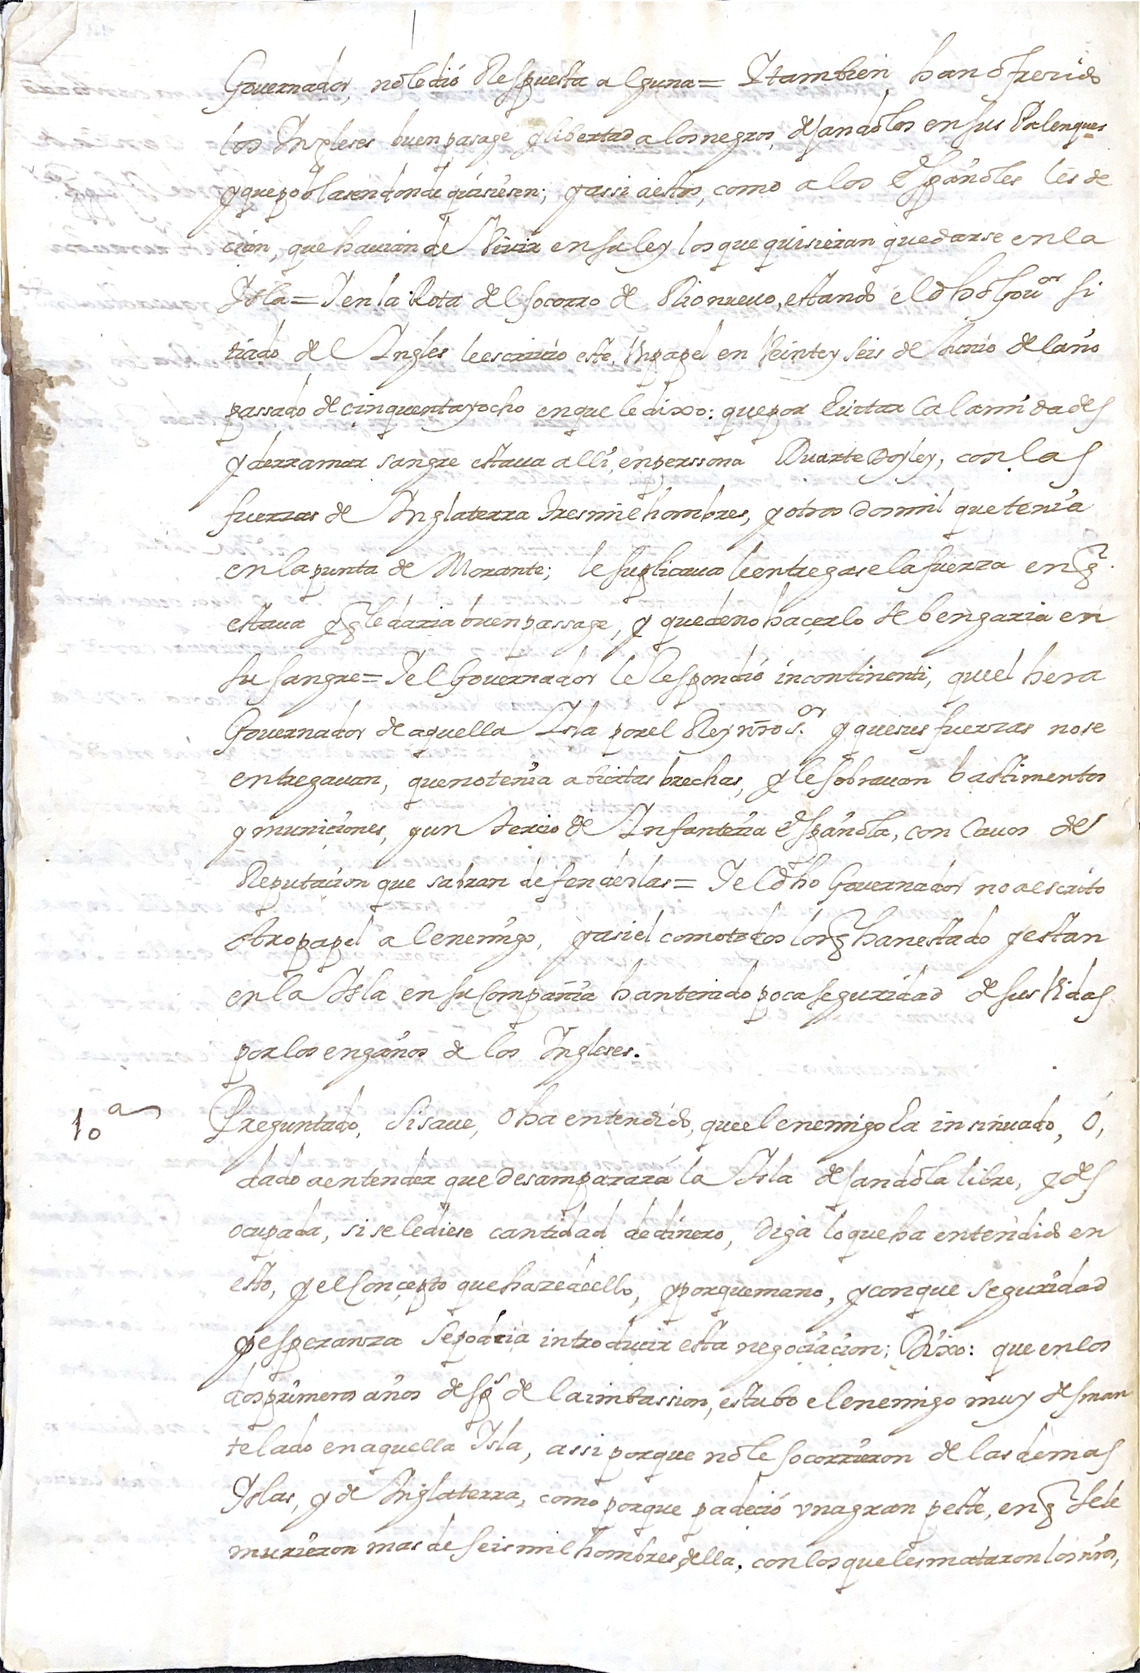 Governador, no le dió Respuesta alguna= Y tambien han ofrecido
los Yngleses buen pasage y libertad a los negros, dejandolos en sus Palenques
y que poblasen donde quisiesen; y assi a estos, como a los españoles les de
cian, que havian de Vivir en su ley los que quisieran quedarse en la
Ysla= Y en la Rota del socorro de Rionuevo, estando el dho Gouor si
tiado del Yngles le escriuio este Vn papel en Veinte y seis de Junio del año
passado de çinquenta y ocho en que le dixo: que por Euitar Calamidades
y derramar sangre estaua alli en perssona Duarte Doyley, con las
fuerzas de Ynglaterra tres mil hombres, y otros dos mil que tenia
en la punta de Morante; le suplicaua le entregase la fuerza en q̃
estaua y q̃ le daria buen passage, y que de no haçerlo se bengaria en
su sangre= Y el Governador le Respondió incontinenti, que el hera
Governador de aquella Ysla por el Rey nro sor. y que sus fuerzas no se
entregauan, que no tenia abiertas brechas, y le sobrauan bastimentos
y muniçiones, y un terçio de Ynfanteria española, con Cauos de
Reputaçion que sabran defenderlas= Y el dho Governador no a escrito
otro papel al enemigo, y asi el como todos los q̃ han estado y estan
en la Ysla en su Compañia han tenido poca seguridad de sus Vidas
por los engaños de los Yngleses.
10a Preguntado, Si saue, o ha entendido, que el enemigo ha insinuado, ó,
dado a entender que desamparara la Ysla dejandola libre, y des
ocupada, si se le diese cantidad de dinero, diga lo que ha entendido en
esto, y el Conçepto que haze de ello, y por que mano, y con que seguridad
y esperanza se podria introducir esta negoçiaçion; Dixo: que en los
dos primeros años desps de la imbassion, estubo el enemigo muy desman
telado en aquella Ysla, assi porque no le socorrieron de las demas
Yslas, y de Ynglaterra, como porque padeció vna gran peste, en q̃ se le
murieron mas de seis mil hombres della, con los que les mataron los nros,